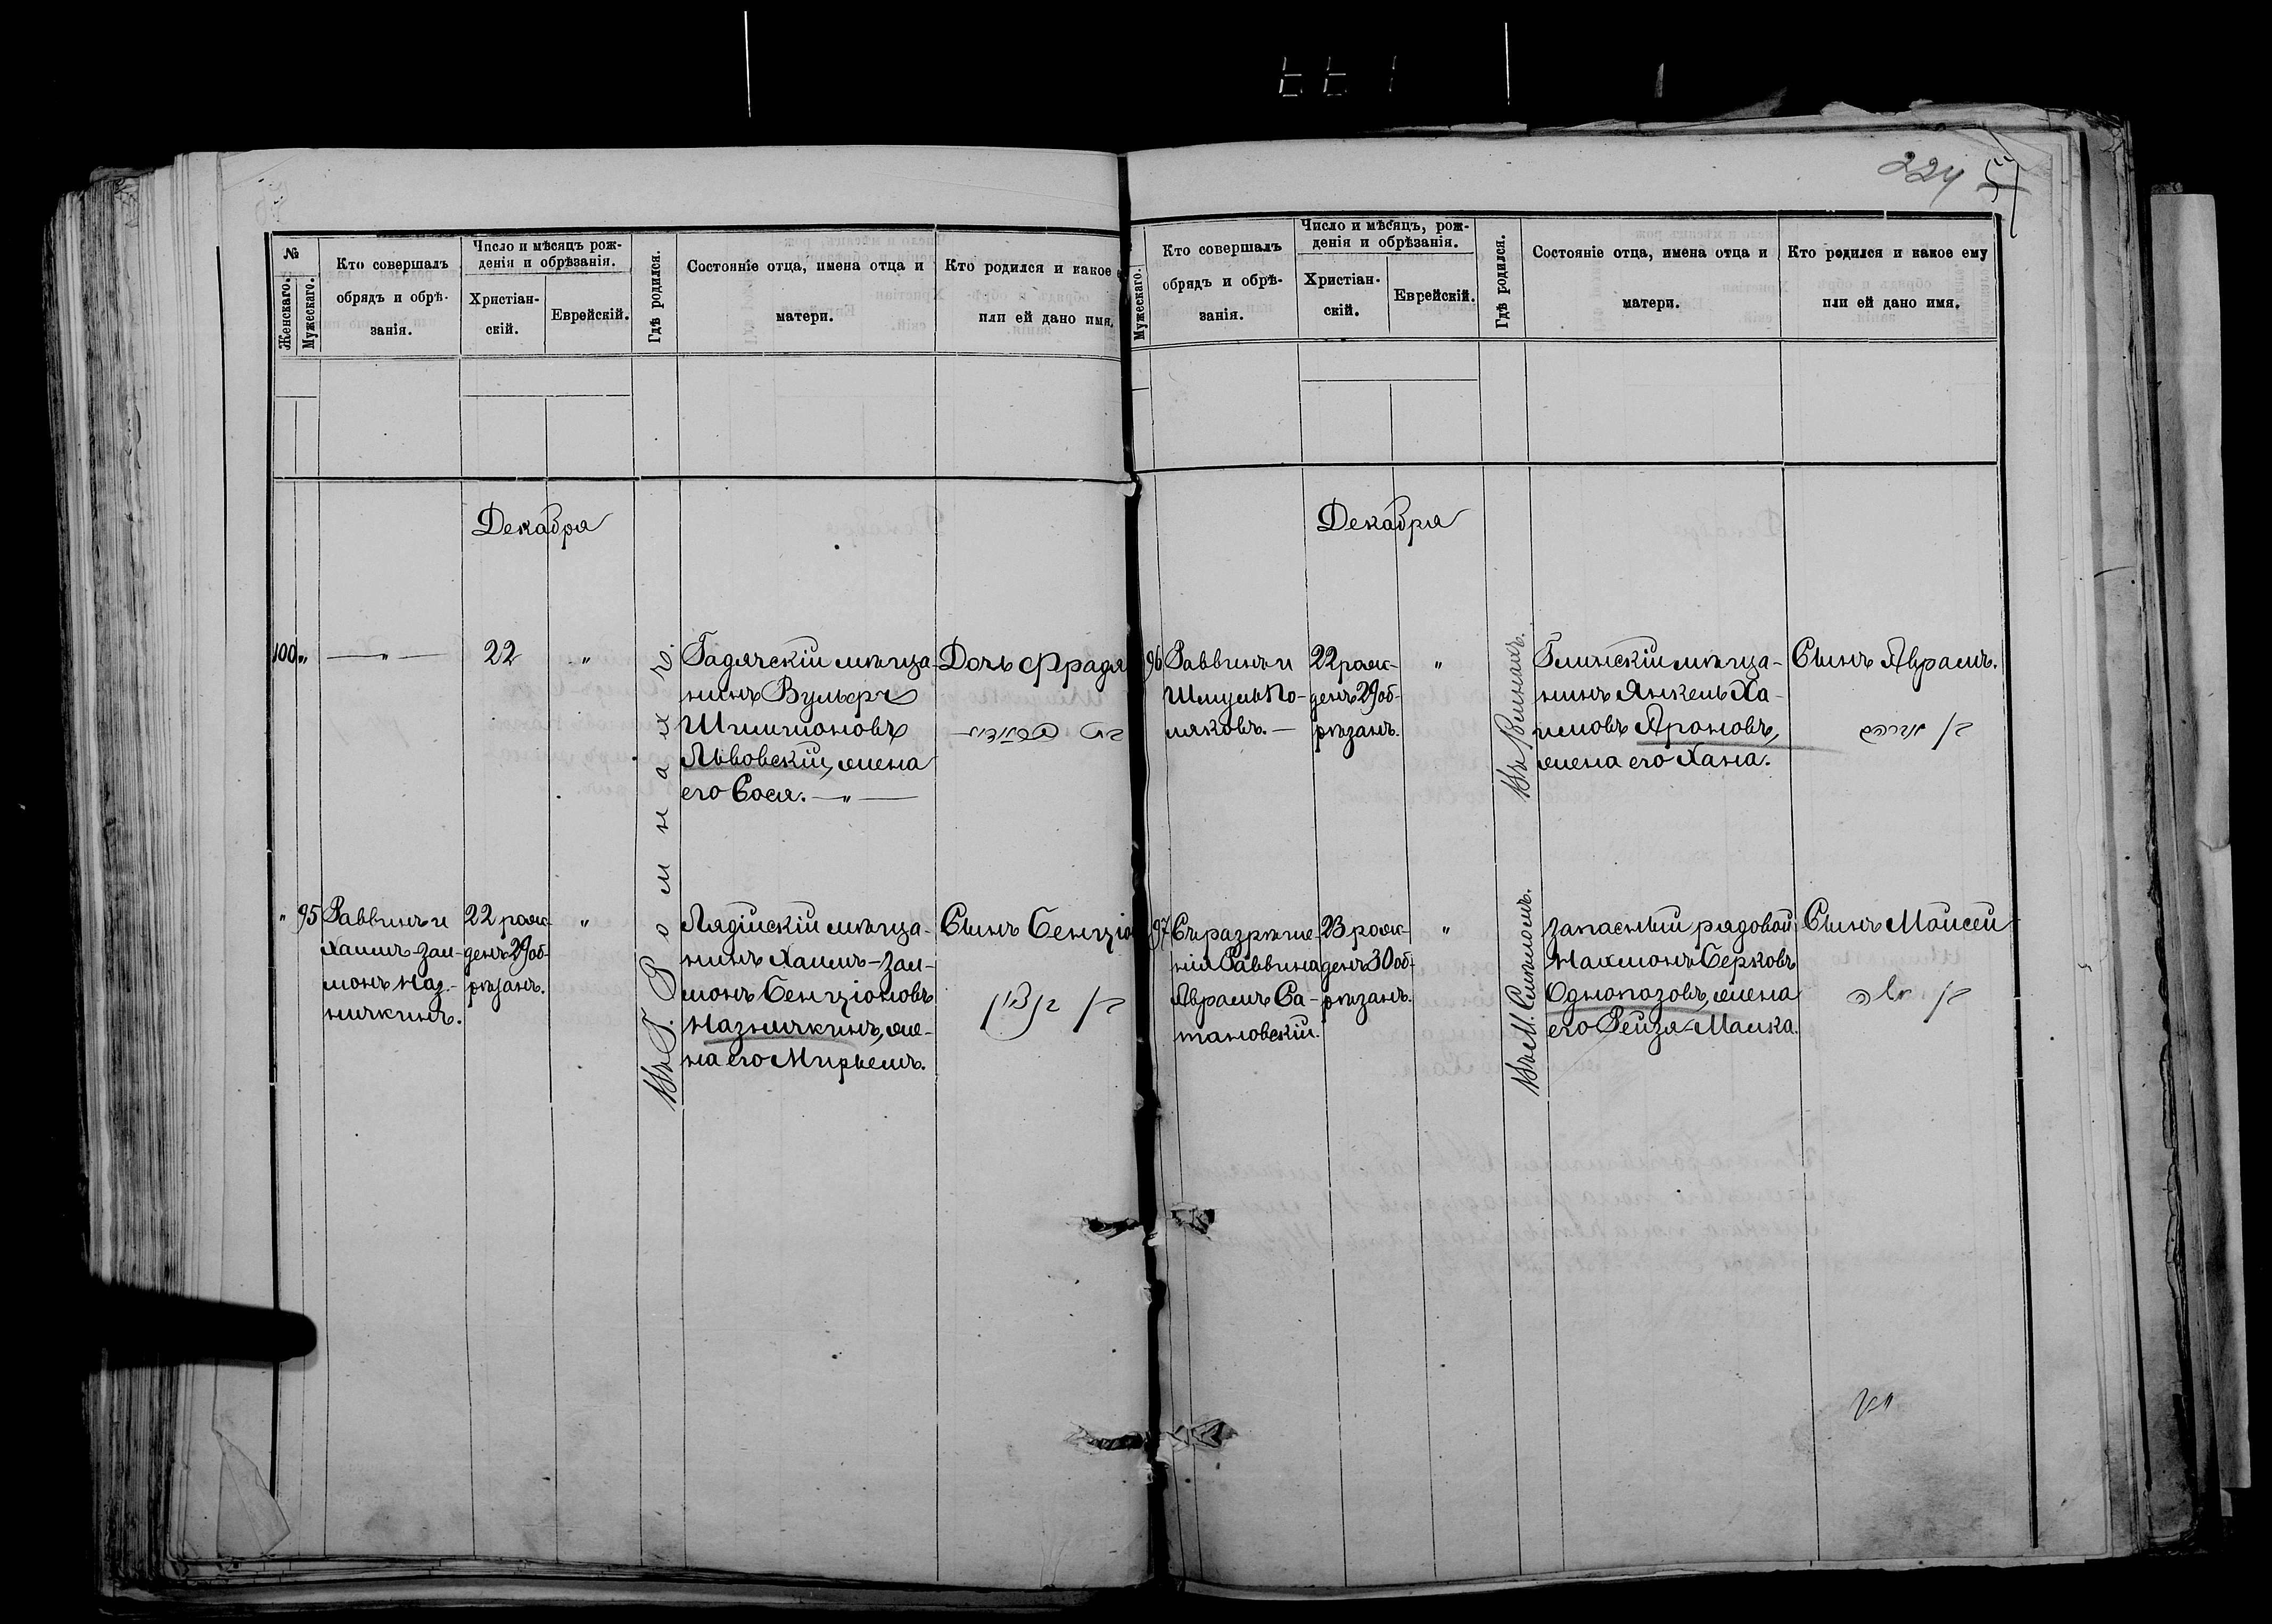 224
№
Женскаго.
Мужескаго.
Кто совершалъ
обрядъ и обрѣ-
занія.
Число и мѣсяцъ рож-
денія и обрѣзанія.
Христіан-
скій.
Еврейскій.
Гдѣ родился.
Состояніе отца, имена отца и
матери.
Кто родился и какое
или ей дано имя.
Декабря
100
„
— „ —
22
„
Въ Г. Ромнахъ.
Гадячскій мѣща-
нинъ Вульфъ
Шлиомовъ
Львовскій, жена
его Сося. — „ —
Дочь Фрадя
בת פראדיא
„
95
Раввинъ и
Хаимъ-Зал-
монъ Наз-
нячкинъ.
22 рож-
денъ 29 об-
рѣзанъ.
„
Лядійскій мѣща-
нинъ Хаимъ-Зал-
монъ Бенціоновъ
Назнячкинъ, же-
на его Мирьемъ.
Сынъ Бенціо
בן בן ציון
Мужескаго.
Кто совершалъ
обрядъ и обрѣ-
занія.
Число и мѣсяцъ, рож-
денія и обрѣзанія.
Христіан-
скій.
Еврейскій.
Гдѣ родился.
Состояніе отца, имена отца и
матери.
Кто родился и какое ему
или ей дано имя.
Декабря
96
Раввинъ и
Шмуль По-
ляковъ. —
22 рож-
денъ 29 об-
рѣзанъ.
„
Глинскій мѣща-
нинъ Янкель Ха-
имовъ Ароновъ,
жена его Хана.
Сынъ Абрамъ.
בן אברהם
97
Съ разрѣше-
нія Раввина
Абрамъ Са-
тановскій.
23 рож-
денъ 30 об-
рѣзанъ.
„
Въ М. Смѣломъ.
Запасный рядовой
Нахмонъ Берковъ
Однопозовъ, жена
его Рейзя-Малка.
Сынъ Мойсей
בן משה